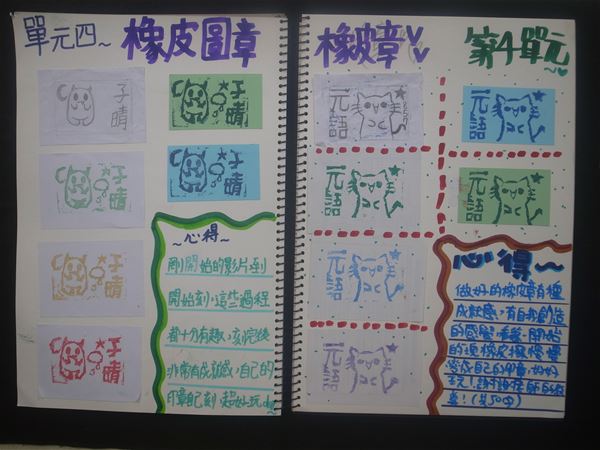 單元四~
橡皮圖章
子晴
子晴
子晴
子晴
子晴
子晴
~心得~
剛開始的影片到
開始刻,這些過程
都十分有趣,刻完後
非常有成就感,自己的
印章自己刻,超好玩
橡皮章
第4單元
元語
元語
元語
元語
元語
元語
心得~
做好的橡皮章有種
成就感,有自我創造
的感覺,看著一開始
成自己的印章,好好
玩!謝謝
!(共50字)